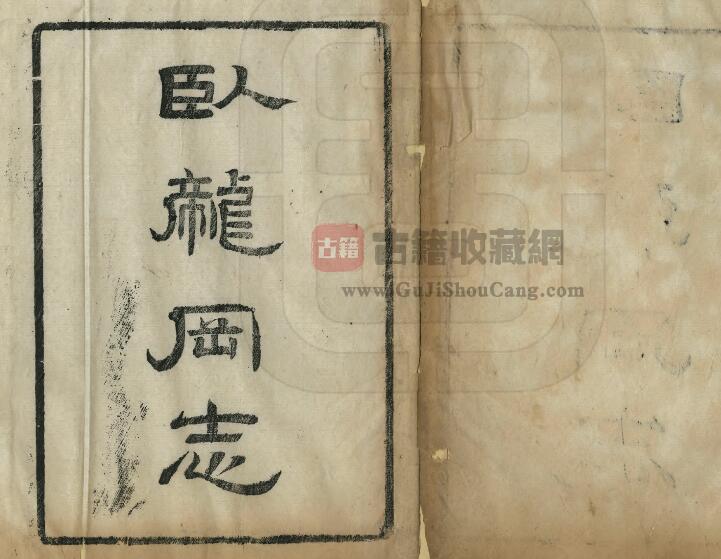 臥龍岡志
古籍
古籍收藏網
www.GuJiShouCang.com